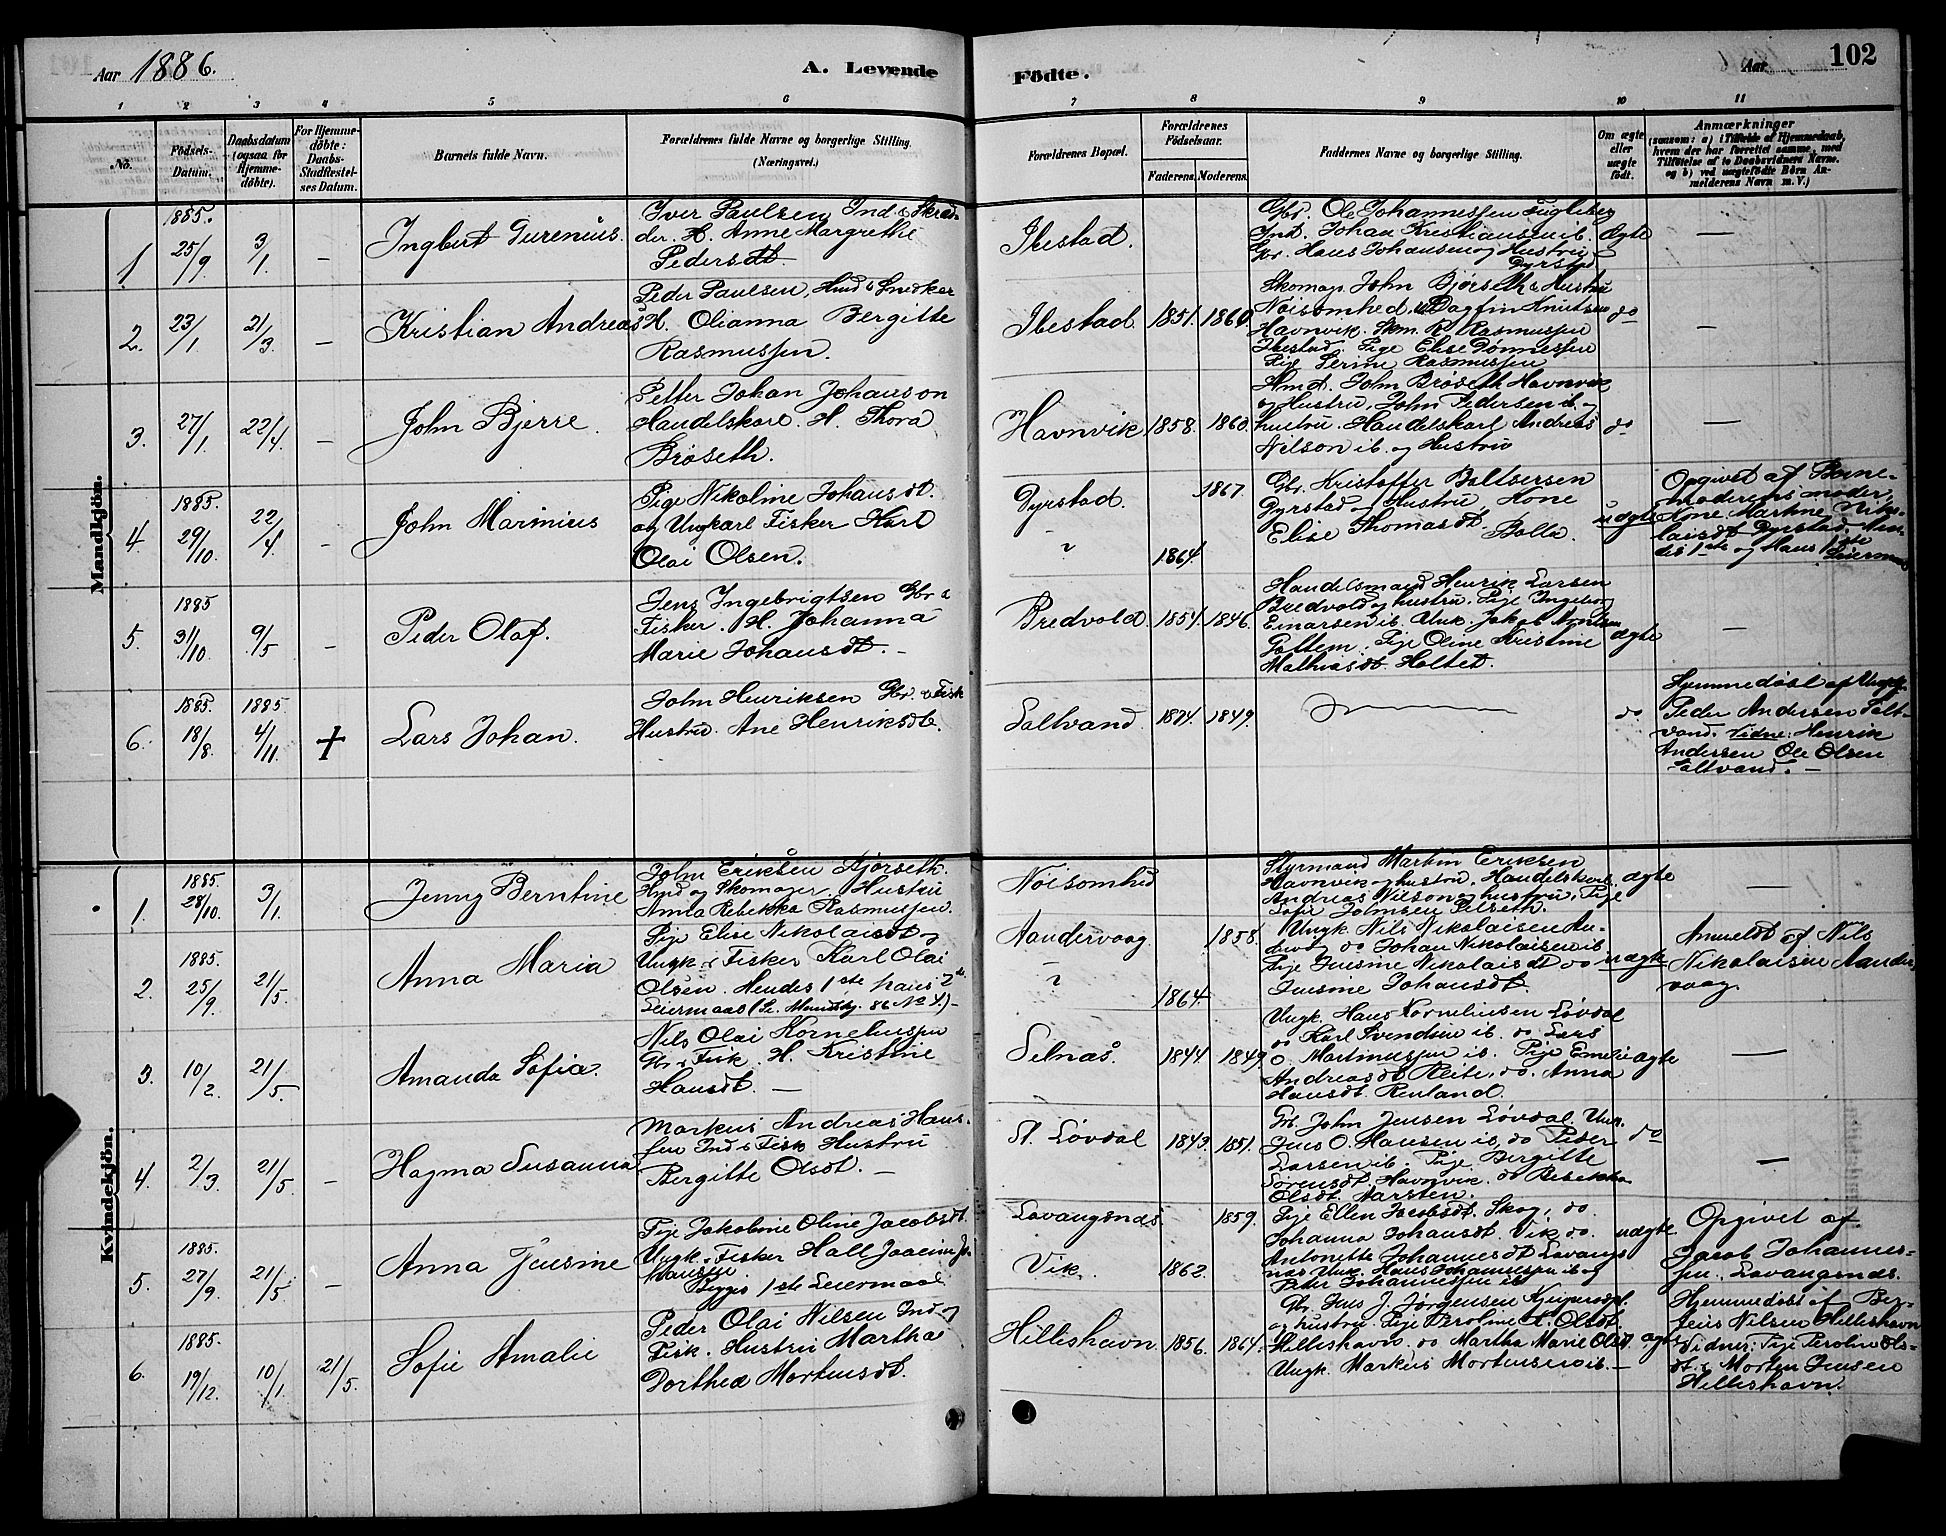 Aar 1886.
A. Levende Födte.
Aar
102
1 2 3 4 5 6 7 8 9 10 11
No.
Födsels-
Datum.
Daabsdatum
(ogsaa for
Hjemme-
döbte).
For Hjemme-
döbte:
Daabs-
Stadfæstel-
ses Datum.
Barnets fulde Navn.
Forældrenes fulde Navne og borgerlige Stilling.
(Næringsvei.)
Forældrenes Bopæl.
Forældrenes
Födselsaar.
Faderens. Moderens.
Faddernes Navne og borgerlige Stilling.
Om ægte
eller
uægte
födt.
Anmærkninger
(saasom: a) i Tilfælde af Hjemmedaab,
hvem der har forrettet samme, med
Tilföielse af to Daabsvidners Navne.
og b) ved uægtefödte Börn An-
melderens Navn m. V.)
Mandkjön.
1
1885.
25/9
3/1
–
Ingbert Turenius.
Iver Paulsen Ind & Skræd-
der. H. Anne Margrethe
Pedersdt.
Ibestad.
Gbr. Ole Johannessen Fugleber
Ind. Johan Kristiansen ib.
Gbr. Hans Johansen og Hustru
Dyrstad
Ægte
–
2.
23/1.
21/3.
–
Kristian Andreas
Peder Paulsen, Hmd & Snedker
H. Olianna Bergitte
Rasmussen.
Ibestad.
1851. 1860.
Skomag. John Bjørseth & Hustru
Nøisomhed, Dagfin Knutsen
Havnvik. Skm. R. Rasmussen
Ibestad. Pige Elise Tønnessen
Pige Serine Rasmussen
do
–
3.
27/1
22/4.
–
John Bjerre.
Petter Johan Johanson
Handelskarl. H. Thora
Brøseth.
Havnvik.
1858. 1860.
Hmd. John Brøseth Havnvik
og Hustru, John Pedersen ib. og
hustru. Handelskarl Andreas
Nilson ib. og Hustru
do
–
4
1885.
29/10.
22/4.
–
John Marinius
Pige Nikoline Johansdt.
og Ungkarl Fisker Karl
Olai Olsen.
Dyrstad.
1867.
"
1864.
Gbr. Kristoffer Baltsersen
Dyrstad og Hustru Kone
Elise Thomasdt. Bolla.
uægte
Opgivet af Barne-
moderens moder,
Kone Martine Niko-
laisdt Dyrstad. Hen-
des 1ste og Hans 1ste
Leiermaal
5.
1885
31/10.
9/5
–
Peder Olaf.
Jens Ingebrigtsen Gbr &
Fisker. H. Johanna
Marie Johansdt. –
Bredvold.
1854. 1846.
Handelsmand Henrik Larsen
Bredvold og hustru. Pige Ingeborg
Einarsen ib. Unk. Jakob
Pige Oline Kristine
Mathiasdt. Holtet.
ægte
–
6.
1885.
18/8.
1885.
4/11.
+
Lars Johan.
John Henriksen Gbr. & Fisk
Hustru. Ane Henriksdt.
Saltvand.
1849.
do
Hjemmedøbt af Ungk.
Peder Andersen Salt-
vand. Vidne: Henrik
Andersen Ole Olsen
Saltvand. –
Kvindekjön.
1.
1885.
28/10.
3/1.
Jenny Berntine
John Eriksen Bjørseth.
Hmd og Skomager, Hustru
Anna Rebekka Rasmussen.
Nøisomhed
Styrmand Martin Eriksen
Havnvik og hustru, Handelskarl
Andreas Nilson og hustru, Pige
Sofie Johnsen
ægte
–
2.
1885.
25/9.
21/5.
Anna Maria
Pige Elise Nikolaisdt og
Ungk. & Fisker Karl Olai
Olsen. Hendes 1ste hans 2de
Leiermaal (Se Mandkj. 86 No 4.) –
Aandervaag
1858.
"
1864.
Ungk. Nils Nikolaisen An-
dervag do Johan Nikolaisen ib.
Pige Jensine Nikolaisdt do
Jensine Johansdt.
uægte
Anmeldt af Nils
Nikolaisen Aander-
vaag.
3.
10/2.
21/5.
Amanda Sofia.
Nils Olai Korneliussen
Gbr & Fisk. H. Kristine
Hansdt. –
Selnæs.
1844. 1849.
Ungk. Hans Korneliusen Løvdal
do Karl Svendsen ib. do Lars
O. Martinussen ib. Pige Emelie
Andreasdt Reite, do. Anna
Hansdt. Renland.
ægte
–
4.
2/3.
21/5.
–
Hagma Susanna
Markus Andreas Hans-
sen Ind & Fisk Hustru
Bergitte Olsdt. –
St. Løvdal
1843. 1851.
Gb. John Jensen Løvdal, Unk.
Jens O. Hansen ib. do Peder
Larsen ib. Pige Bergitte
Sørensdt. Havnvik. do Rebekka
Olsdt. Aarsten.
do
–
5.
1885.
27/9.
21/5
–
Anna Jensine
Pige Jakobine Oline Jacobsdt.
Ungk. & Fisker Hall Joacim Jo-
hansen
Begges 1ste Leiermaal
Lavangsnæs.
1859.
Vik.
1862.
Pige Ellen Jacobsdt. Skog, do.
Johanna Johansdt. Vik do.
Antonette Johannesdt Lavangs-
næs Unk. Hans Johannessen ib og
Peter Johannessen ib
uægte.
Opgivet af
Jacob Johannes-
sen. Lavangsnæs.
6.
1885.
19/12.
10/1.
21/5.
Sofie Amalie
Peder Olai Nilsen Ind og
Fisk. Hustru Martha
Dorthea Mortensdt.
Hilleshavn
1856. 1864.
Gbr. Jens J. Jørgensen
og hustru. Pige Peroline K. Olsdt.
Hilleshavn. do Martha Marie Olsdt
Ungk. Markus Mortensen ib. –
ægte
Hjemmedøbt af Ber-
Nilsen Hilleshavn
Vidner: Pige Peroline Ols-
dt. & Morten Jensen
Hilleshavn.